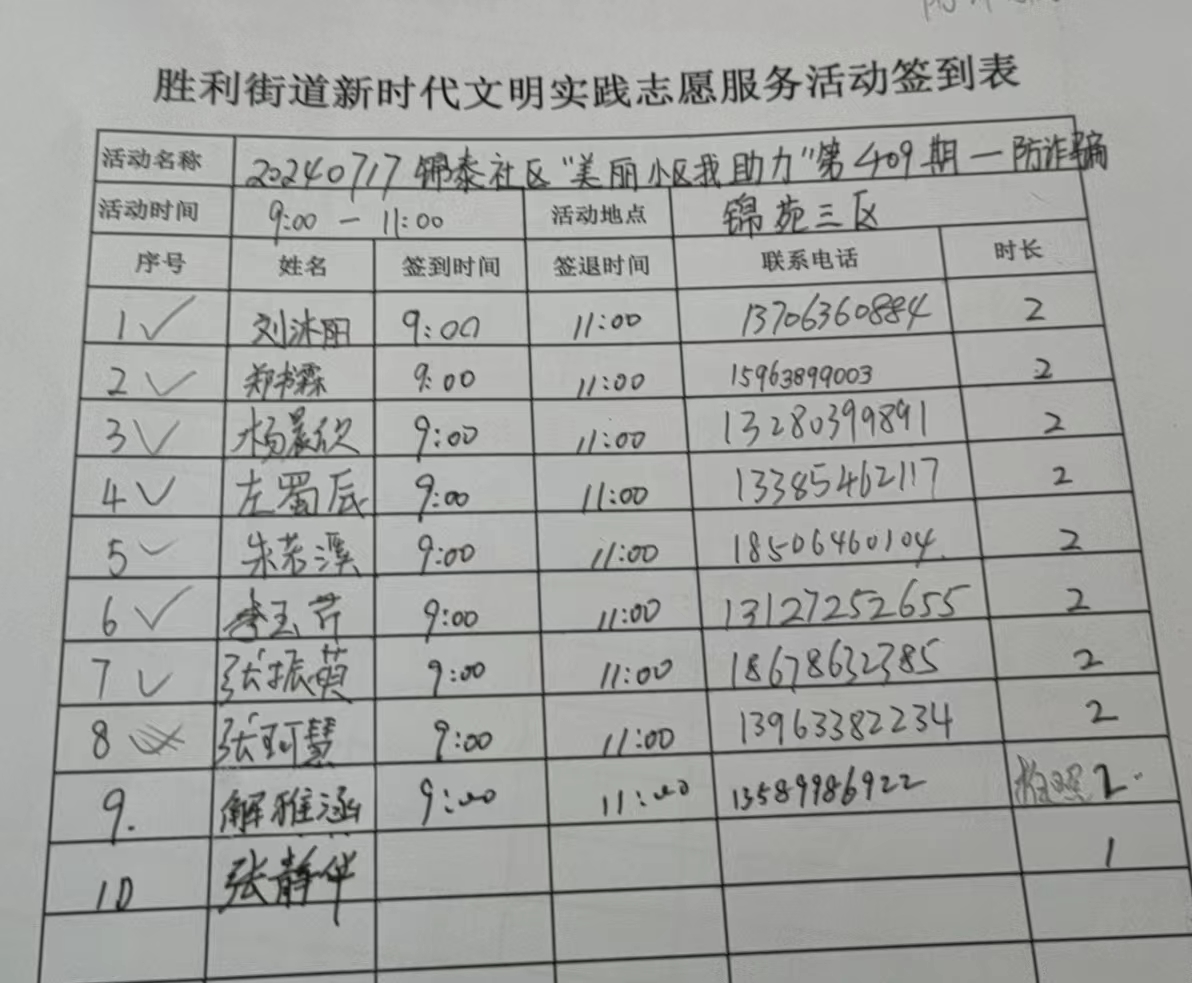 胜利街道新时代文明实践志愿服务活动签到表
活动名称 20240717锦泰社区“美丽小区我助力”第409期一防诈骗
活动时间 9:00 — 11:00 活动地点 锦苑三区
序号 姓名 签到时间 签退时间 联系电话 时长
1✓ 刘沐阳 9:00 11:00 13706360884 2
2✓ 郑书霖 9:00 11:00 15963899003 2
3✓ 杨晨欣 9:00 11:00 13280399891 2
4✓ 左蜀辰 9:00 11:00 13385462117 2
5✓ 朱若溪 9:00 11:00 18506460104 2
6✓ 李玉芹 9:00 11:00 13127252655 2
7✓ 张振萸 9:00 11:00 18678632385 2
8 张珂慧 9:00 11:00 13963382234 2
9. 解雅涵 9:00 11:00 13589986922 2
10 张静华 1